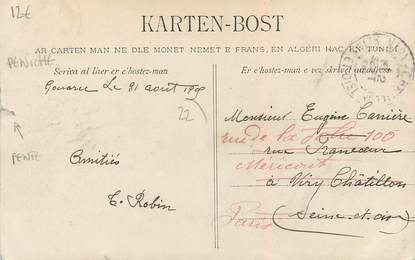 12€
KARTEN-BOST
AR CARTEN MAN NE DLE MONET NEMET E FRANS, EN ALGÉRI HAG EN TUNISI
PENICHE
Scriva al lizer er c'hostez-man
Er c'hostez-man e vez skrivet an adress
Gouarec le 21 août 1909
22
Monsieur Eugène Carrière
rue de la Folie 100
rue Francœur
Méricourt
à Viry Châtillon
(Seine-et-oise)
Paris
PENTE
Amitiés
E. Robin